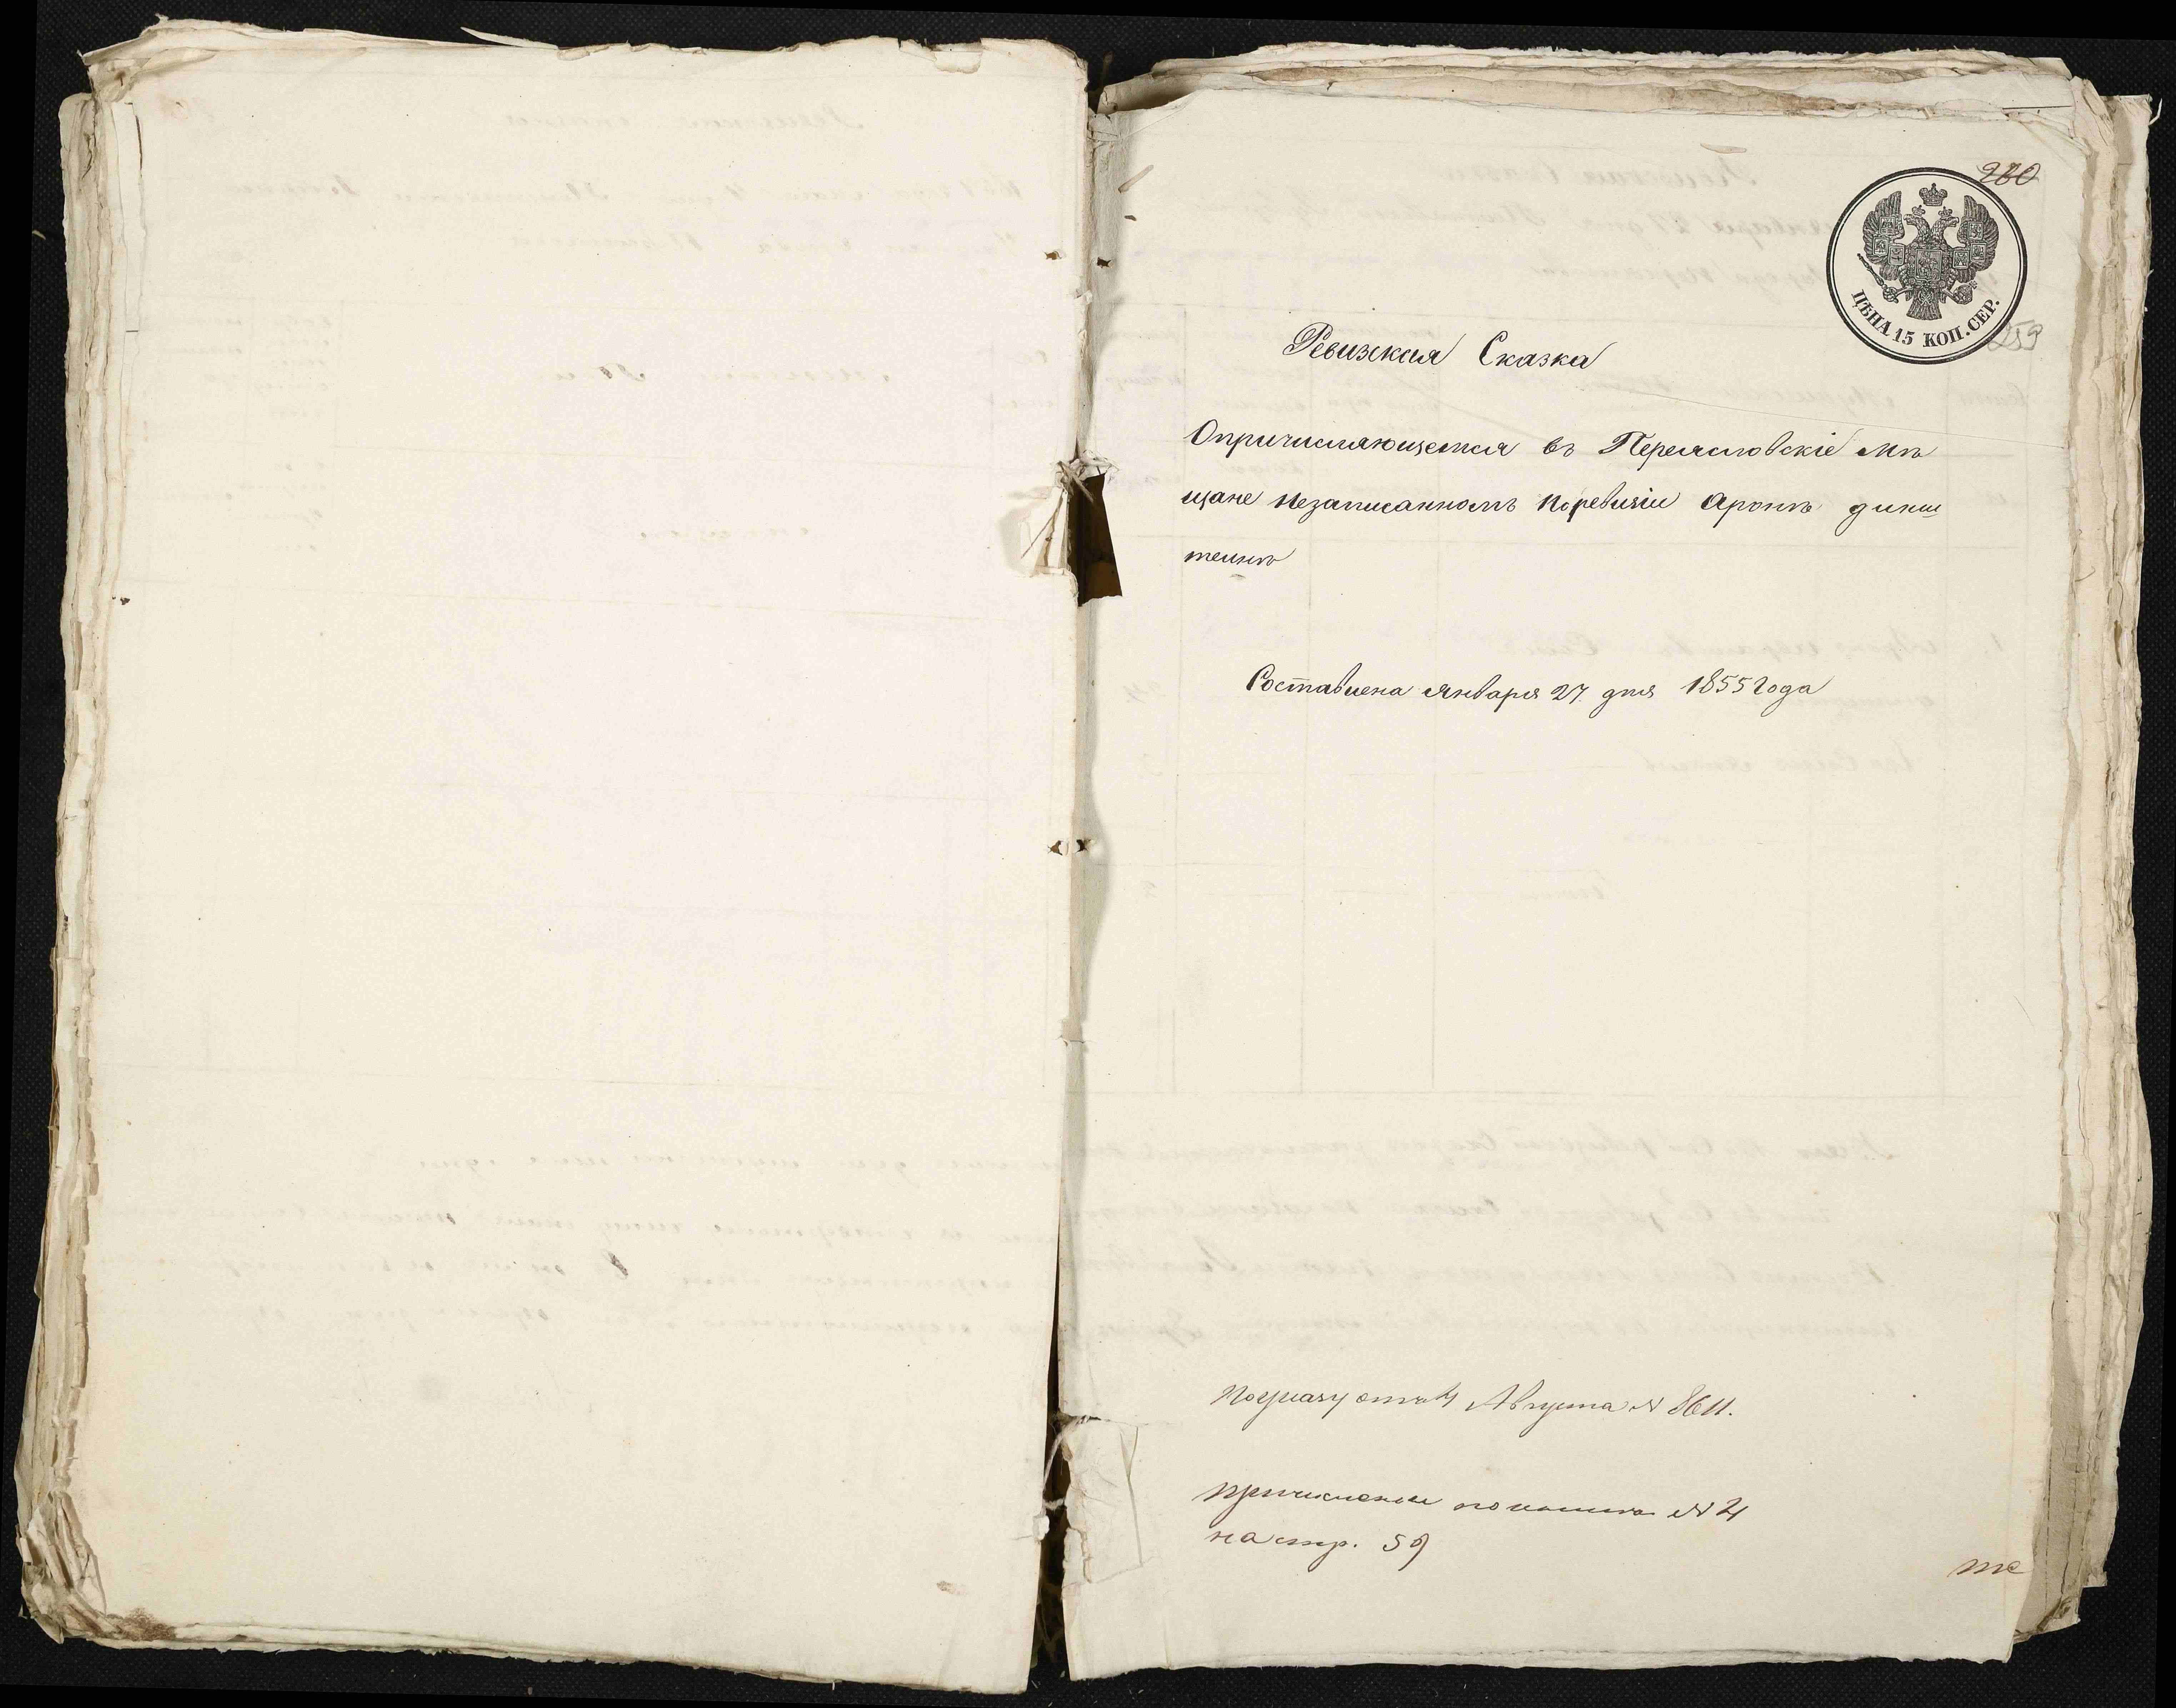 280
ЦѢНА 15 КОП. СЕР.
259
Ревизкая Сказка
Опричисляющемся въ Переясловскіе Мѣ
щане незаписанномъ поревизіи Аронѣ динш
теинѣ
Составлена Января 27 дня 1855 Года
Поуказу отъ 4 Августа N 8611.
причислены N 4
на стр. 59